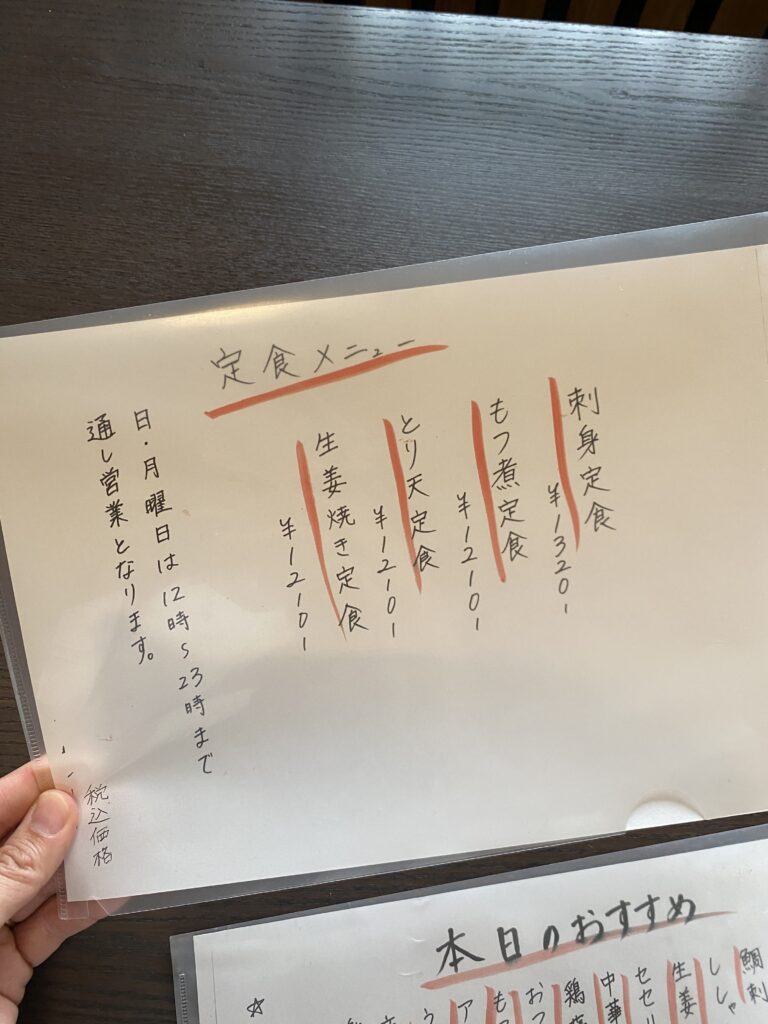 定食メニュー
刺身定食
¥1320-
もつ煮定食
¥1210-
とり天定食
¥1210-
生姜焼き定食
¥1210-
日・月曜日は12時~23時まで
通し営業となります。
税込価格
本日のおすすめ
鯛刺
ししゃ
生姜
セセリ
中華
鶏
おつ
も
ア
う
☆